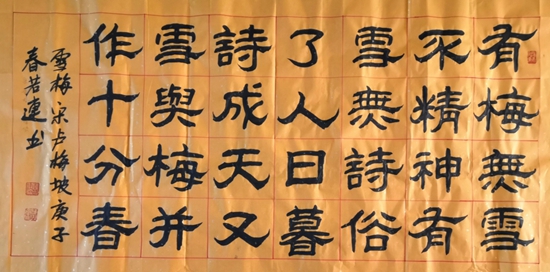 有梅無雪
不精神有
雪無詩俗
了人日暮
詩成天又
雪與梅并
作十分春
雪梅宋卢梅坡庚子
春若連书